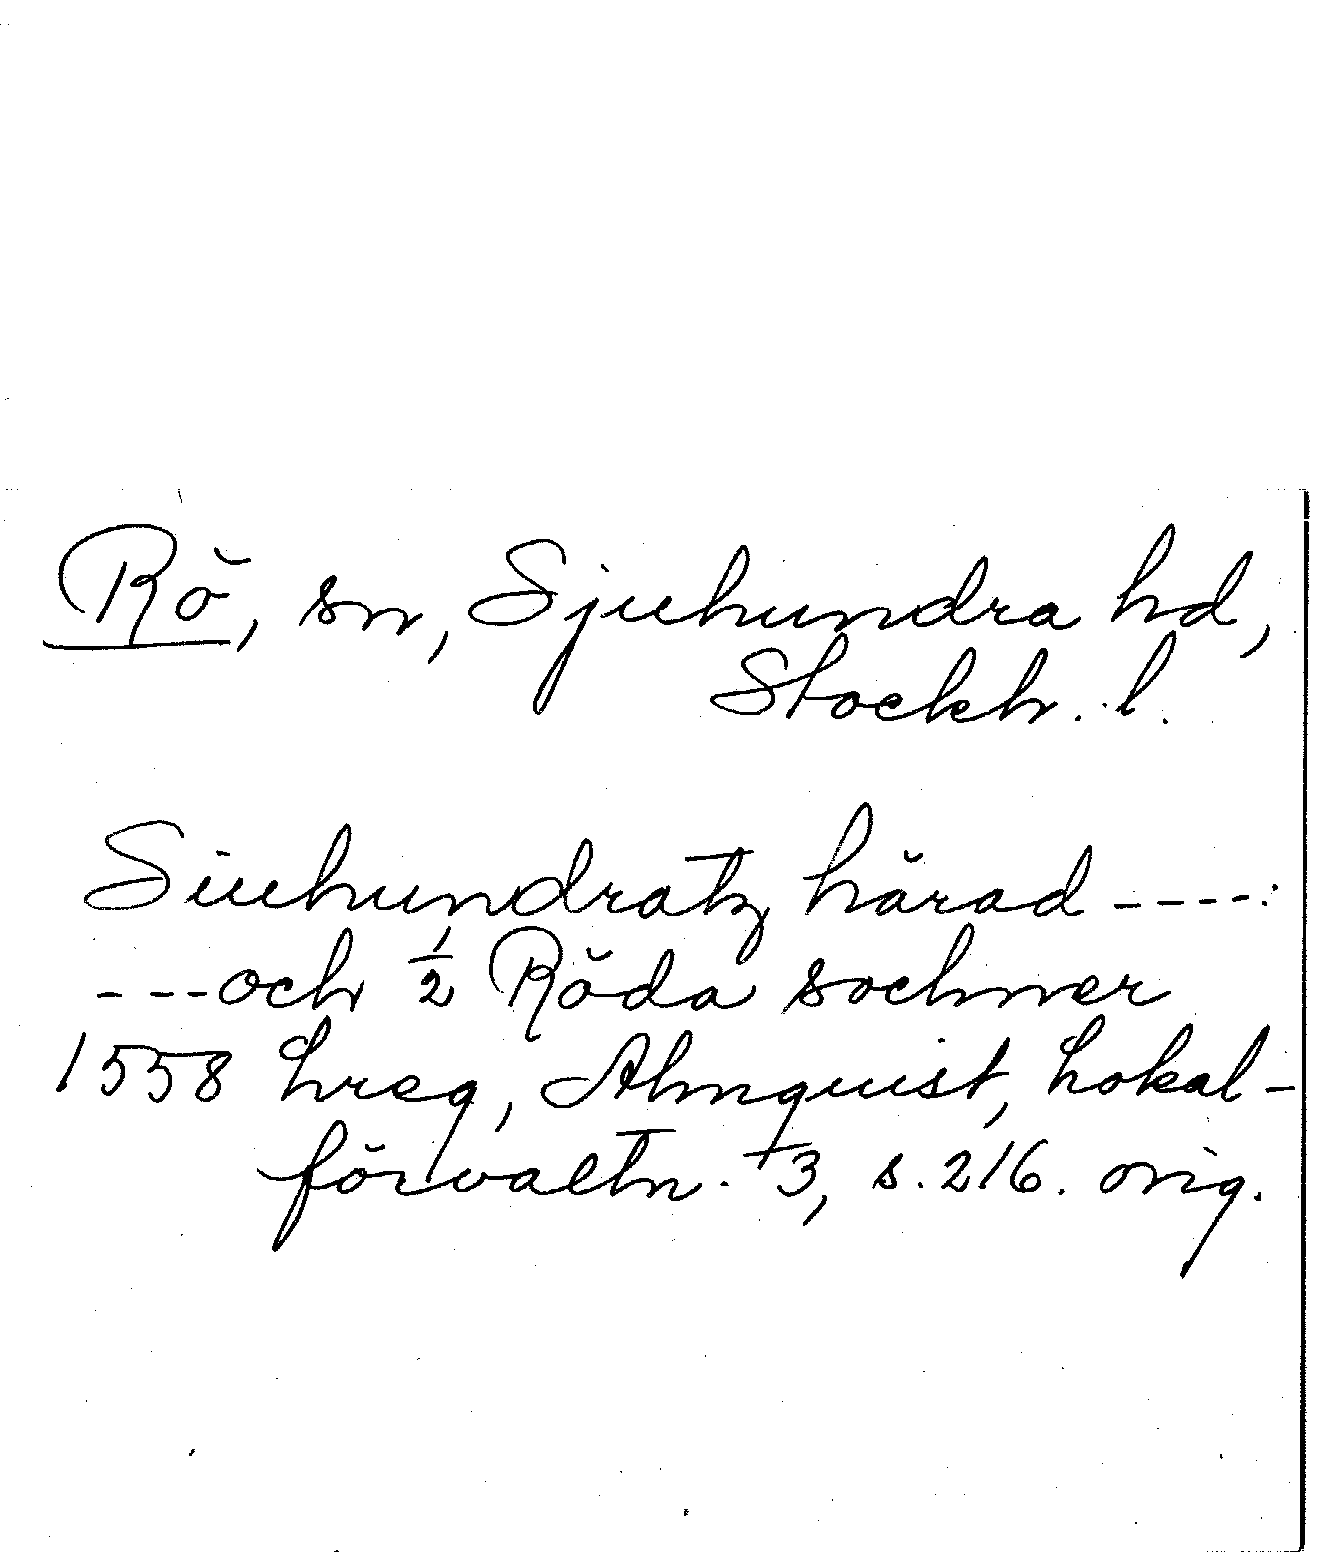 Rö, sn, Sjuhundra hd,
Stockh. l.
Siuhundratz härad ----
---och ½ Röda sochner
1558 Lreg, Almquist, Lokal-
förvaltn. +3, s. 216. orig.